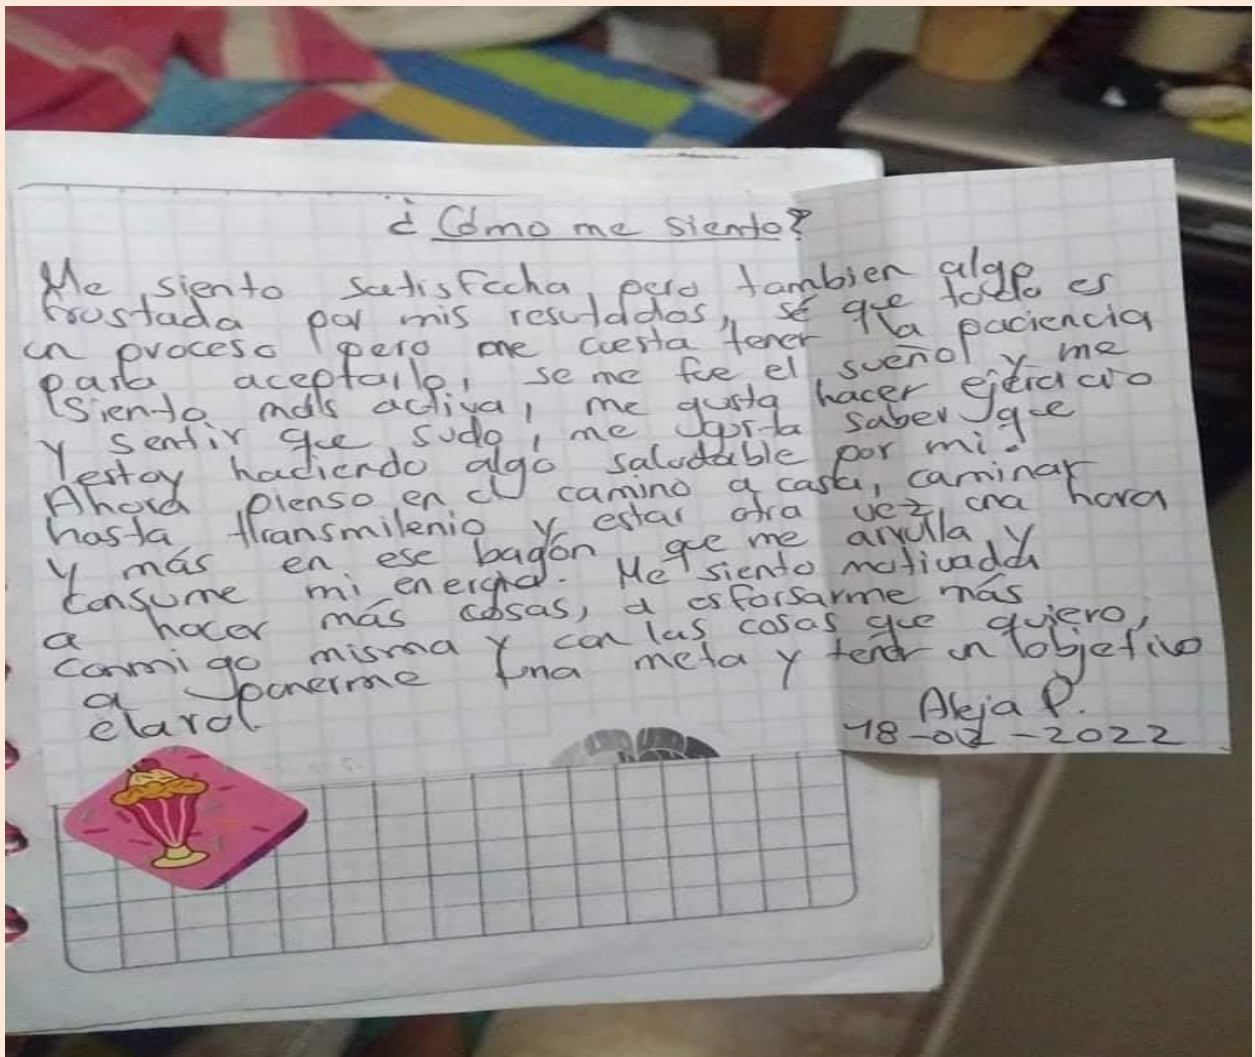 ¿Cómo me siento?
Me siento satisfecha, pero tambien algo
frostada por mis resultados, sé que todo es
un proceso pero me cuesta tener la paciencia
para aceptarlo, se me fue el sueño y me
siento más activa, me gusta hacer ejercicio
y sentir que sudo, me gusta saber que
estoy haciendo algo saludable por mi.
Ahora pienso en el camino a casa, caminar
hasta transmilenio y estar otra vez una hora
y más en ese bagón que me arrulla y
consume mi energia. Me siento motivada
a hacer más cosas, a esforsarme más
conmigo misma y con las cosas que quiero,
a ponerme una meta y tener un objetivo
claro!
Aleja P.
18-02-2022